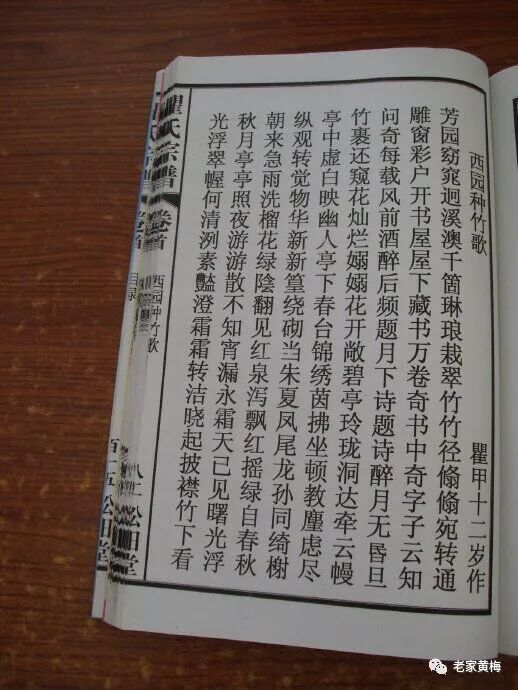 西园种竹歌
瞿甲十二岁作
芳园窈窕迥溪澳千箇琳琅栽翠竹竹径翛翛宛转通
雕窗彩户开书屋屋下藏书万卷奇书中奇字子云知
问奇每载风前酒醉后频题月下诗题诗醉月无昏旦
竹裹还窥花灿烂嫋嫋花开敞碧亭玲珑洞达牵云幔
亭中虚白映幽人亭下春台锦绣茵拂坐顿教塵虑尽
纵观转觉物华新新篁绕砌当朱夏凤尾龙孙同绮榭
朝来急雨洗榴花绿陰翻见红泉泻飘红摇绿自春秋
秋月亭亭照夜游游散不知宵漏永霜天已见曙光浮
光浮翠幄何清洌素豔澄霜霜转洁晓起披襟竹下看
瞿氏宗谱
卷首
西园种竹歌
八一 松田堂
目录
老家黄梅